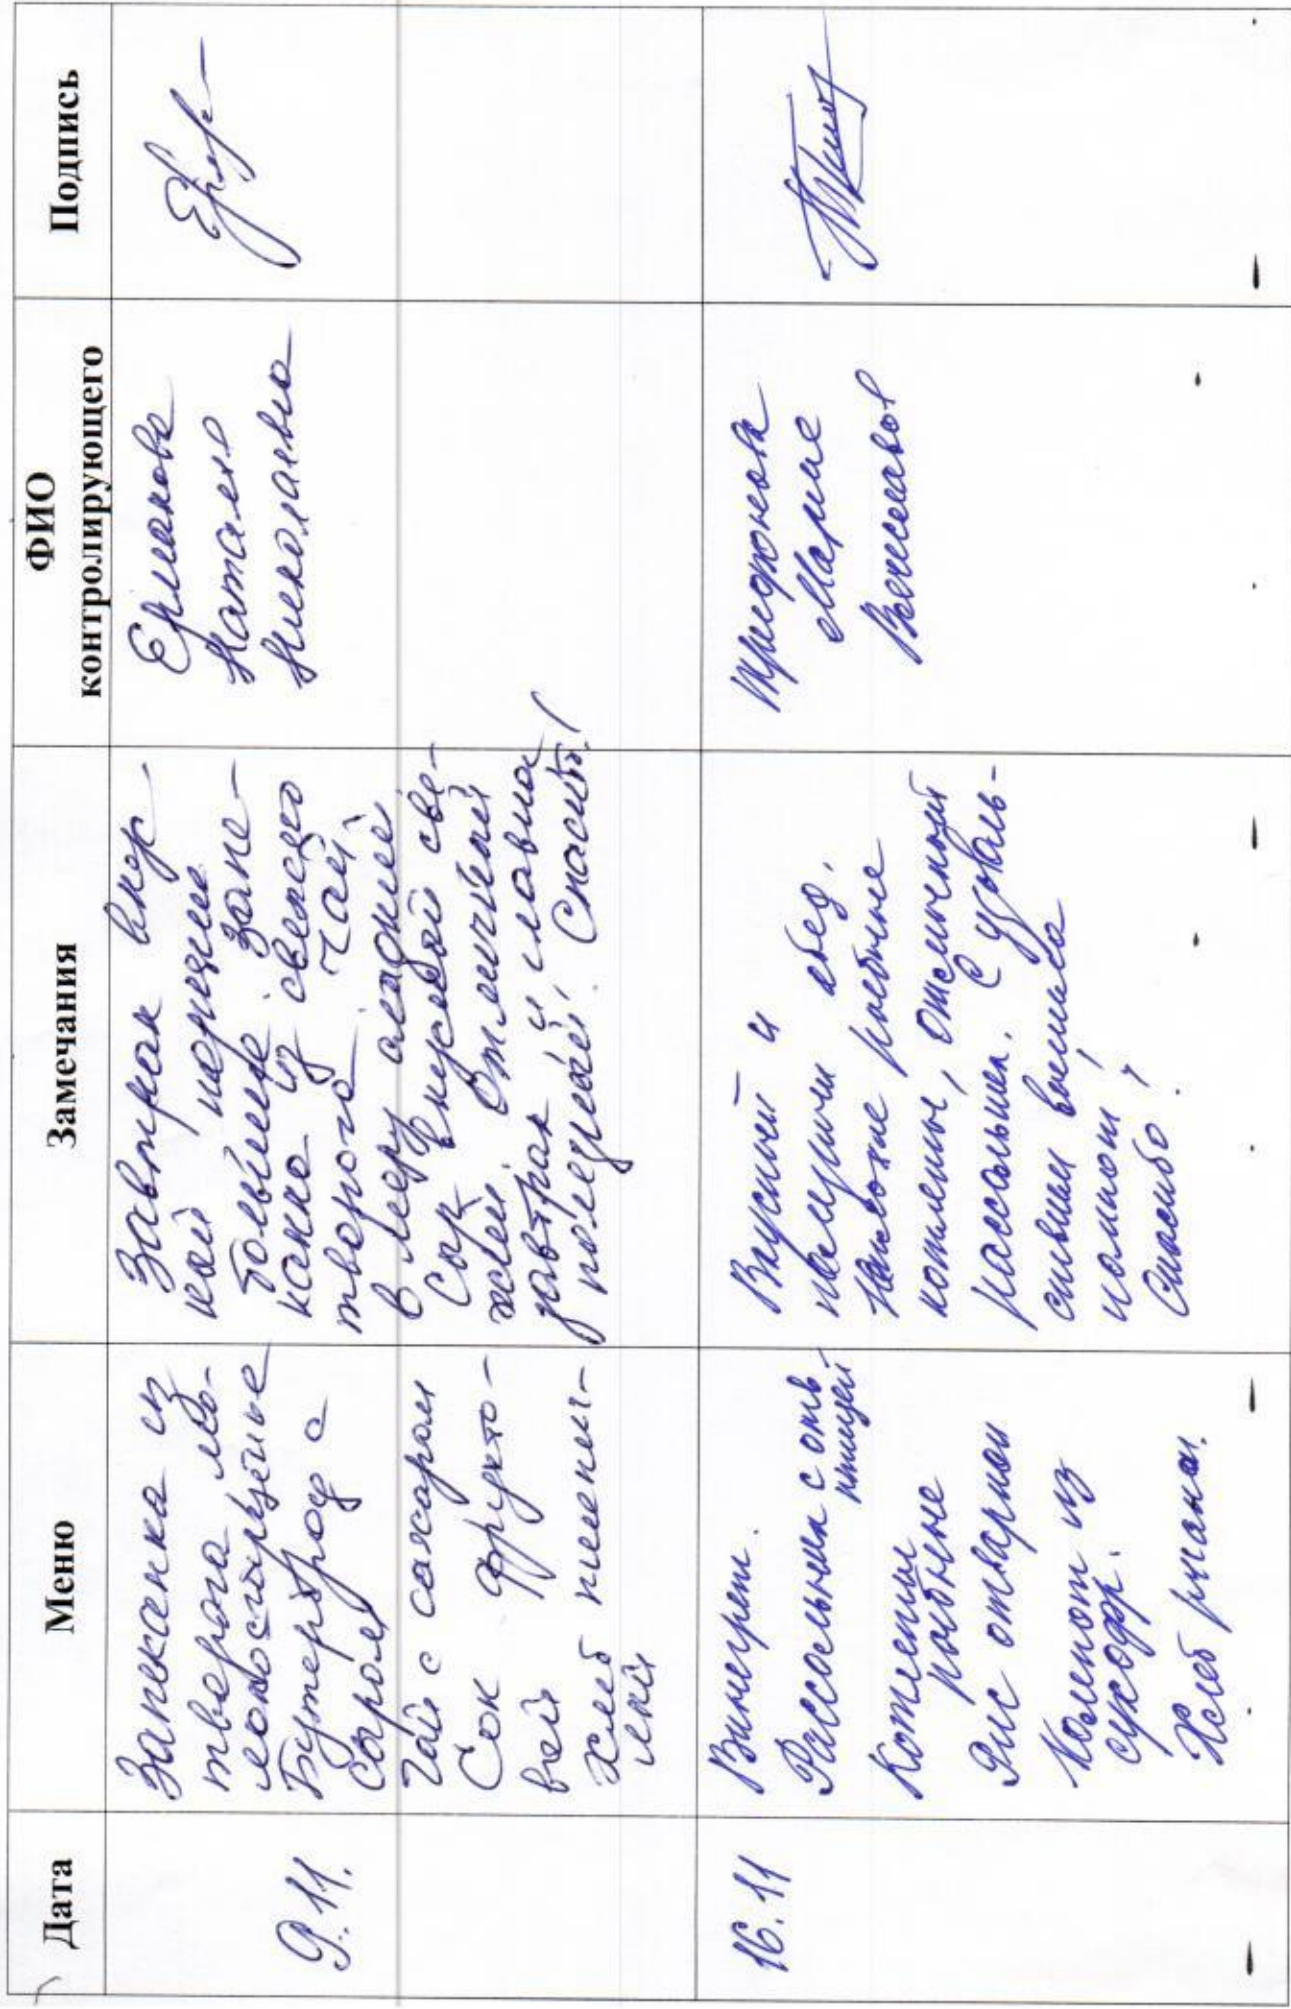 Дата
Меню
Замечания
ФИО
контролирующего
Подпись
9.11.
Запеканка из
творога
Бутерброд с
сыром
Чай с сахаром
Сок фрукто-
вый
Хлеб
Завтрак вкус
ный порции
большие запе-
канка из свежего
творога чай
в меру сладкий
Сок вкусный све-
жий Отличный
завтрак и главное
полезный, Спасибо!
Ермакова
Наталья
Николаевна
16.11
Винегрет.
Рассольник с отв
птицей
Котлеты
рыбные
Рис отварной
Компот из
сухофр.
Хлеб ржаной.
Вкусный и
обед.
рыбные
котлеты, отличный
рассольник. С удоволь-
ствием
компот!
Спасибо!
Марина